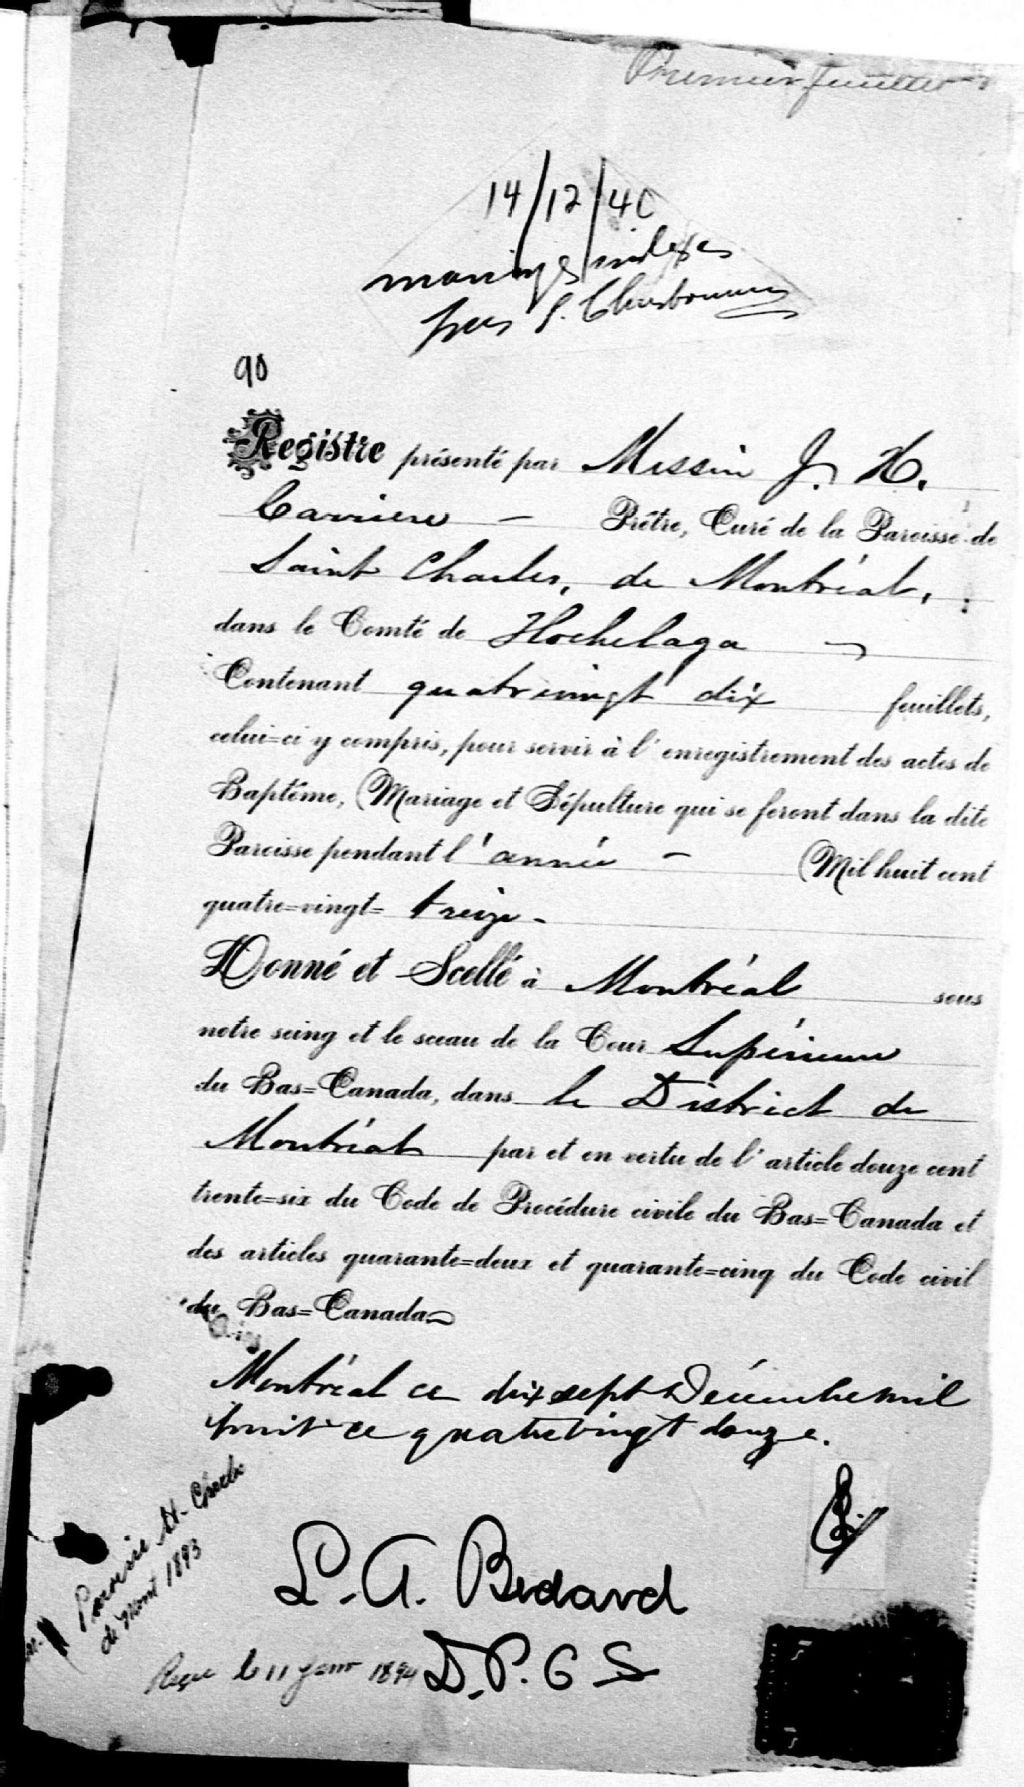 Premier feuillet
14/12/40
mariages indexés
par S. Charbonneau
90
Registre présenté par Messire J. H.
Carrière – Prêtre, Curé de la Paroisse de
Saint Charles, de Montréal,
dans le Comté de Hochelaga
Contenant quatrevingt dix feuillets,
celui=ci y compris, pour servir à l'enregistrement des actes de
Baptême, Mariage et Sépulture qui se feront dans la dite
Paroisse pendant l'année – Mil huit cent
quatre=vingt= treize.
Donné et Scellé à Montréal sous
notre seing et le sceau de la Cour Supérieure
du Bas=Canada, dans le District de
Montréal par et en vertu de l'article douze cent
trente=six du Code de Procédure civile du Bas=Canada et
des articles quarante=deux et quarante=cinq du Code civil
du Bas=Canada
Montréal ce dix sept Décembre mil
huit ce quatrevingt douze.
L. A. Bedard
D. P. C S
Paroisse St-Charles
de Mont 1893
Reçu le 11 janv 1894